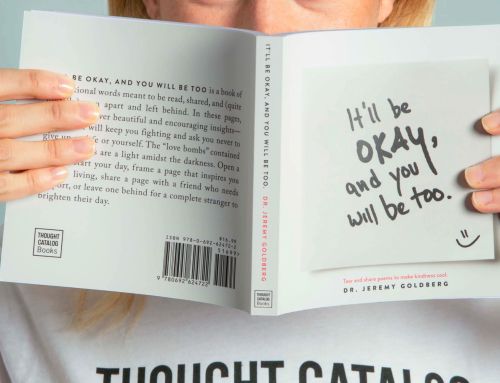 BE OKAY, AND YOU WILL BE TOO is a book of
tional words meant to be read, shared, and (quite
apart and left behind. In these pages,
over beautiful and encouraging insights—
will keep you fighting and ask you never to
life or yourself. The "love bombs" contained
are a light amidst the darkness. Open a
start your day, frame a page that inspires you
living, share a page with a friend who needs
port, or leave one behind for a complete stranger to
brighten their day.
THOUGHT
CATALOG
Books
$16.99
ISBN 978-0-692-62472-2
51699>
9 780692 624722
IT'LL BE OKAY, AND YOU WILL BE TOO. DR. JEREMY GOLDBERG
THOUGHT
CATALOG
Books
It'll be
OKAY,
and you
will be too.
Tear and share poems to make kindness cool.
DR. JEREMY GOLDBERG
THOUGHT CATALOG